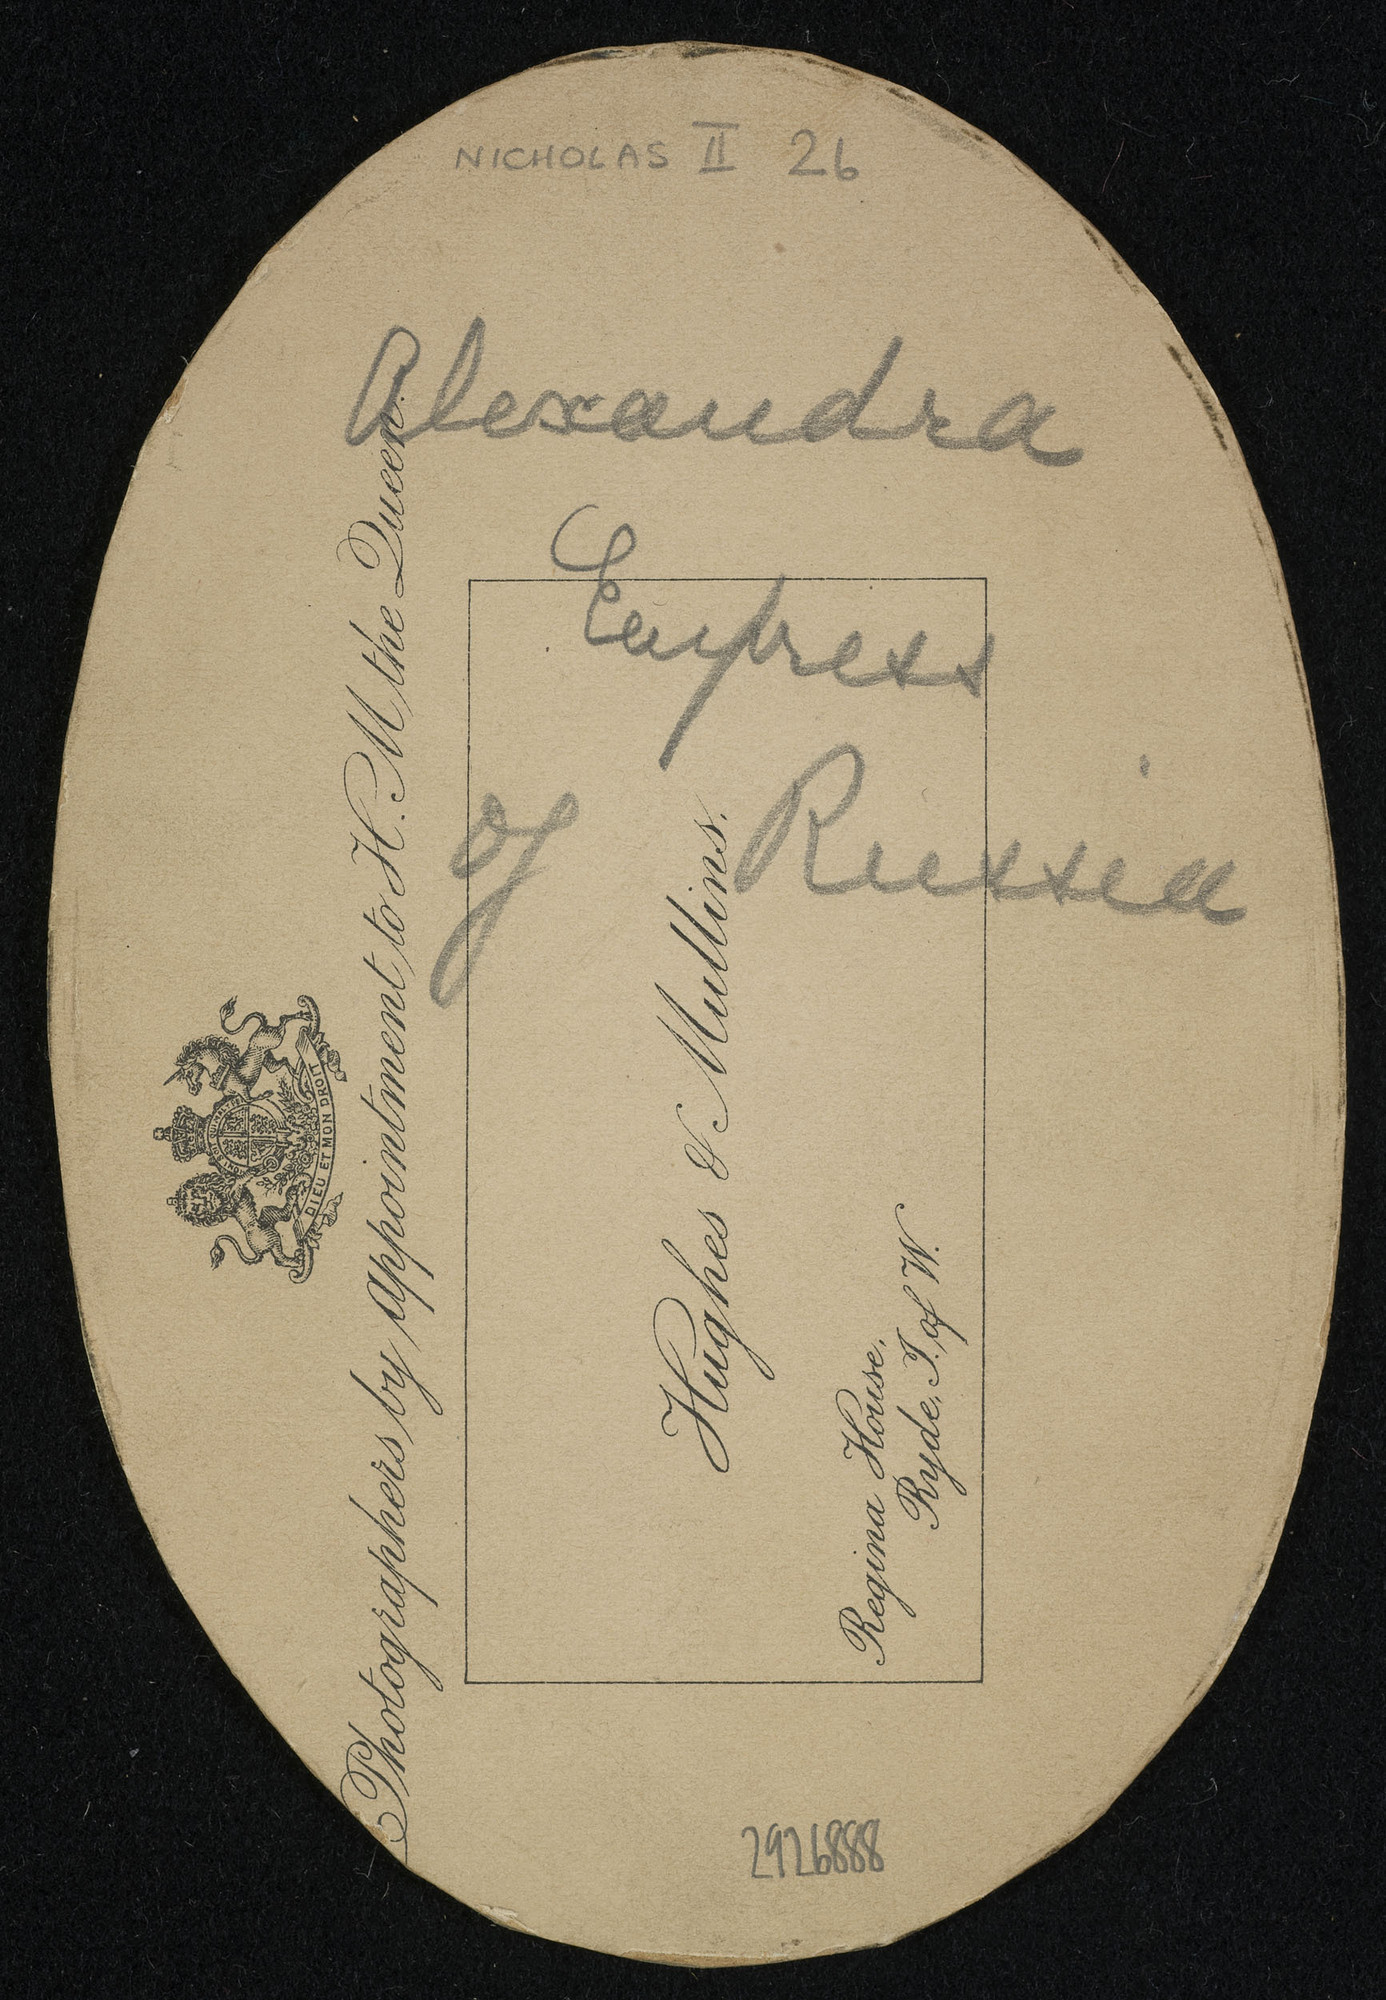 NICHOLAS II 26
Alexandra
Empress
of Russia
Photographers by appointment to H. M. the Queen.
DIEU ET MON DROIT
Hughes & Mullins.
Regina House,
Ryde, I. of W.
2926888